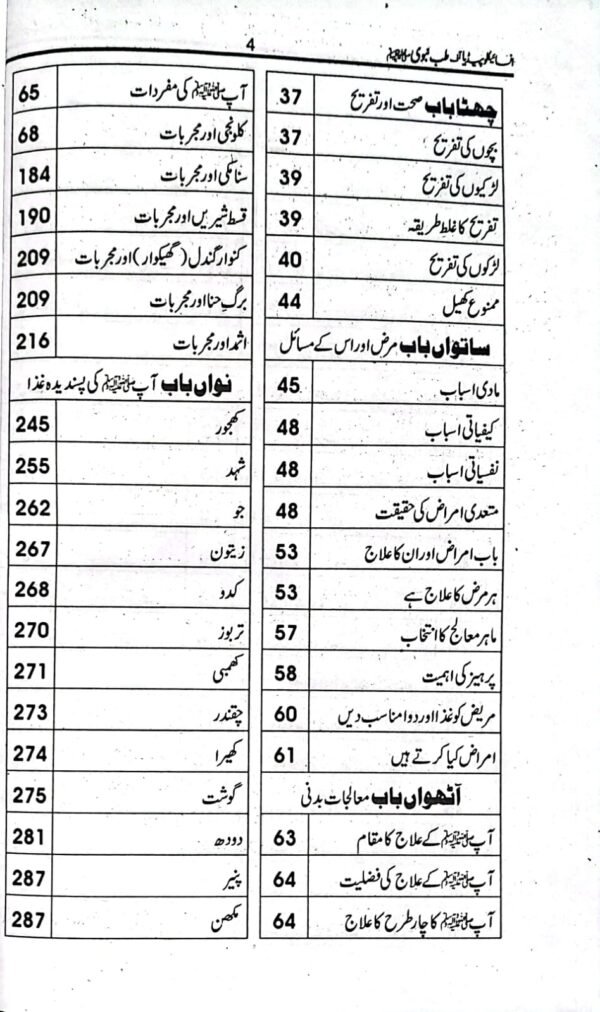 انسائیکلوپیڈیا آف طب نبوی ﷺ
4
چھٹا باب صحت اور تفریح 37
بچوں کی تفریح 37
لڑکیوں کی تفریح 39
تفریح کا غلط طریقہ 39
لڑکوں کی تفریح 40
ممنوع کھیل 44
ساتواں باب مرض اور اس کے مسائل
مادی اسباب 45
کیفیاتی اسباب 48
نفسیاتی اسباب 48
متعدی امراض کی حقیقت 48
باب امراض اور ان کا علاج 53
ہر مرض کا علاج ہے 53
ماہر معالج کا انتخاب 57
پرہیز کی اہمیت 58
مریض کو غذا اور دوا مناسب دیں 60
امراض کیا کرتے ہیں 61
آٹھواں باب معالجات بدنی
آپ ﷺ کے علاج کا مقام 63
آپ ﷺ کے علاج کی فضلیت 64
آپ ﷺ کا چار طرح کا علاج 64
آپ ﷺ کی مفردات 65
کلونجی اور مجربات 68
سنامکی اور مجربات 184
قسط شیریں اور مجربات 190
کنوار گندل (گھیکوار) اور مجربات 209
برگ حنا اور مجربات 209
اثمد اور مجربات 216
نواں باب آپ ﷺ کی پسندیدہ غذا
کھجور 245
شہد 255
جو 262
زیتون 267
کدو 268
تربوز 270
کھمبی 271
چقندر 273
کھیرا 274
گوشت 275
دودھ 281
پنیر 287
مکھن 287